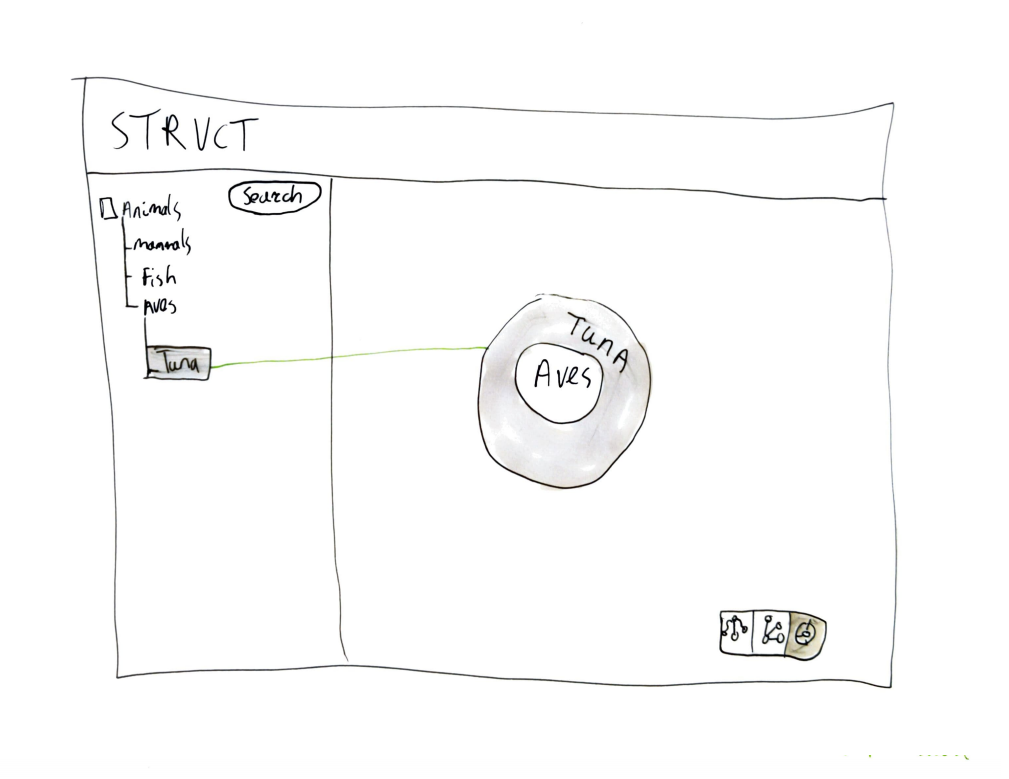 STRUCT
Search
Animals
mammals
Fish
Aves
Tuna
TunA
Aves